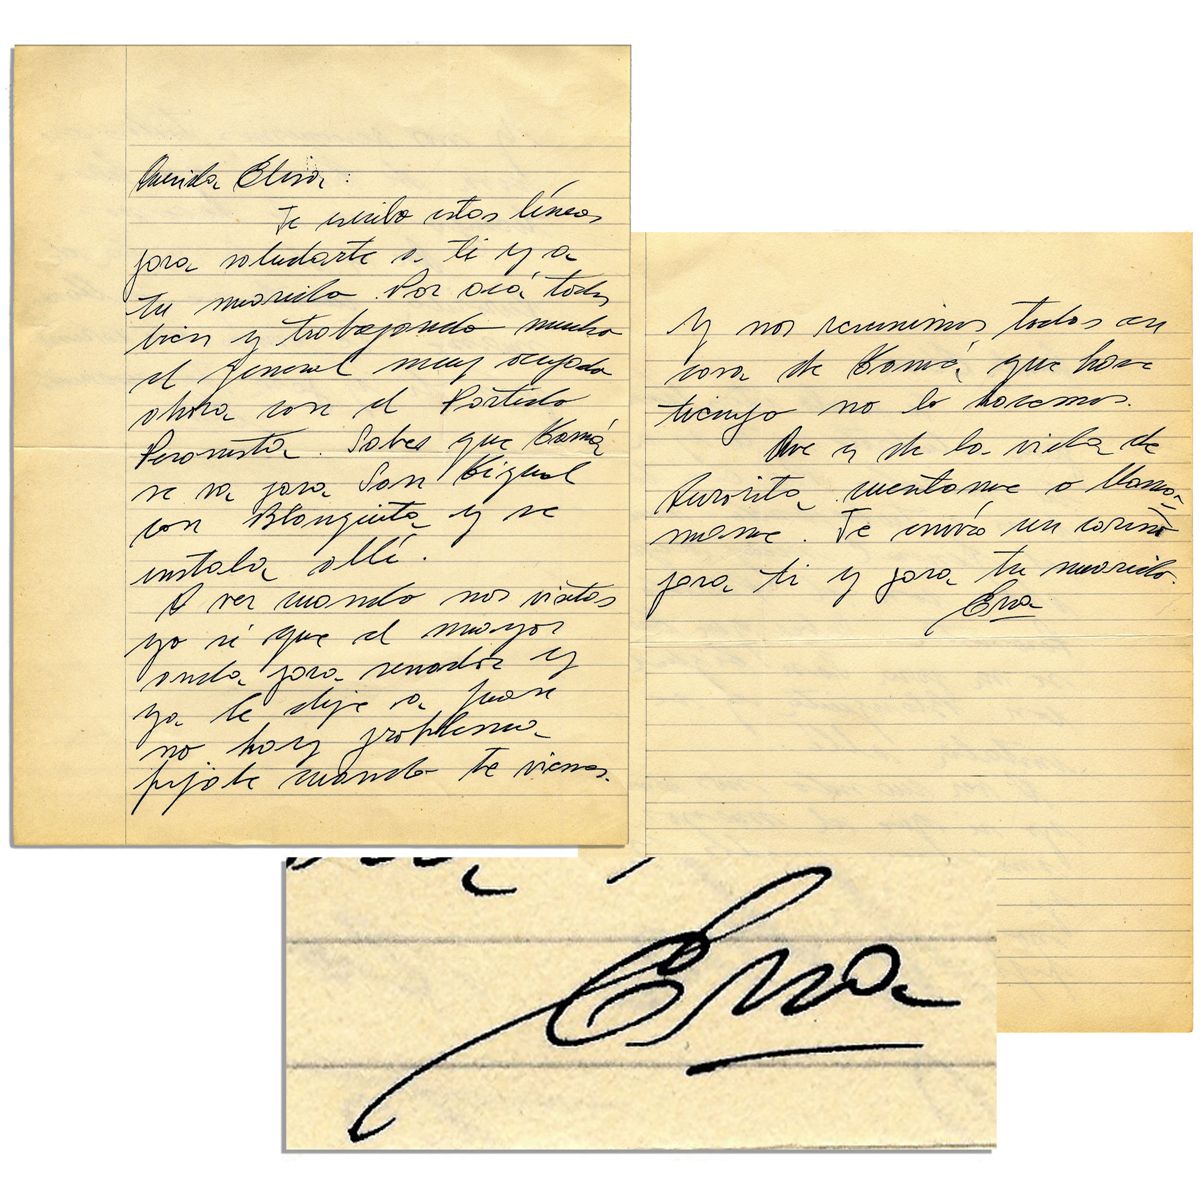 Querida Elisa:
Te escribo estas líneas
para saludarte a ti y a
tu marido. Por acá todos
bien y trabajando mucho
el General muy ocupado
ahora con el Partido
Peronista. Sabes que Mamá
se va para San Miguel
con Blanquita y se
instala allí.
A ver cuando nos visitas
yo sé que el mayor
anda para senador y
ya le dije a Juan
no hay problema
fijate cuando te vienes.
Y nos reunimos todos en
casa de Mamá que hace
tiempo no lo hacemos.
Que es de la vida de
Aurorita cuentame o llama-
mame. Te envío un cariño
para ti y para tu marido.
Eva
Eva